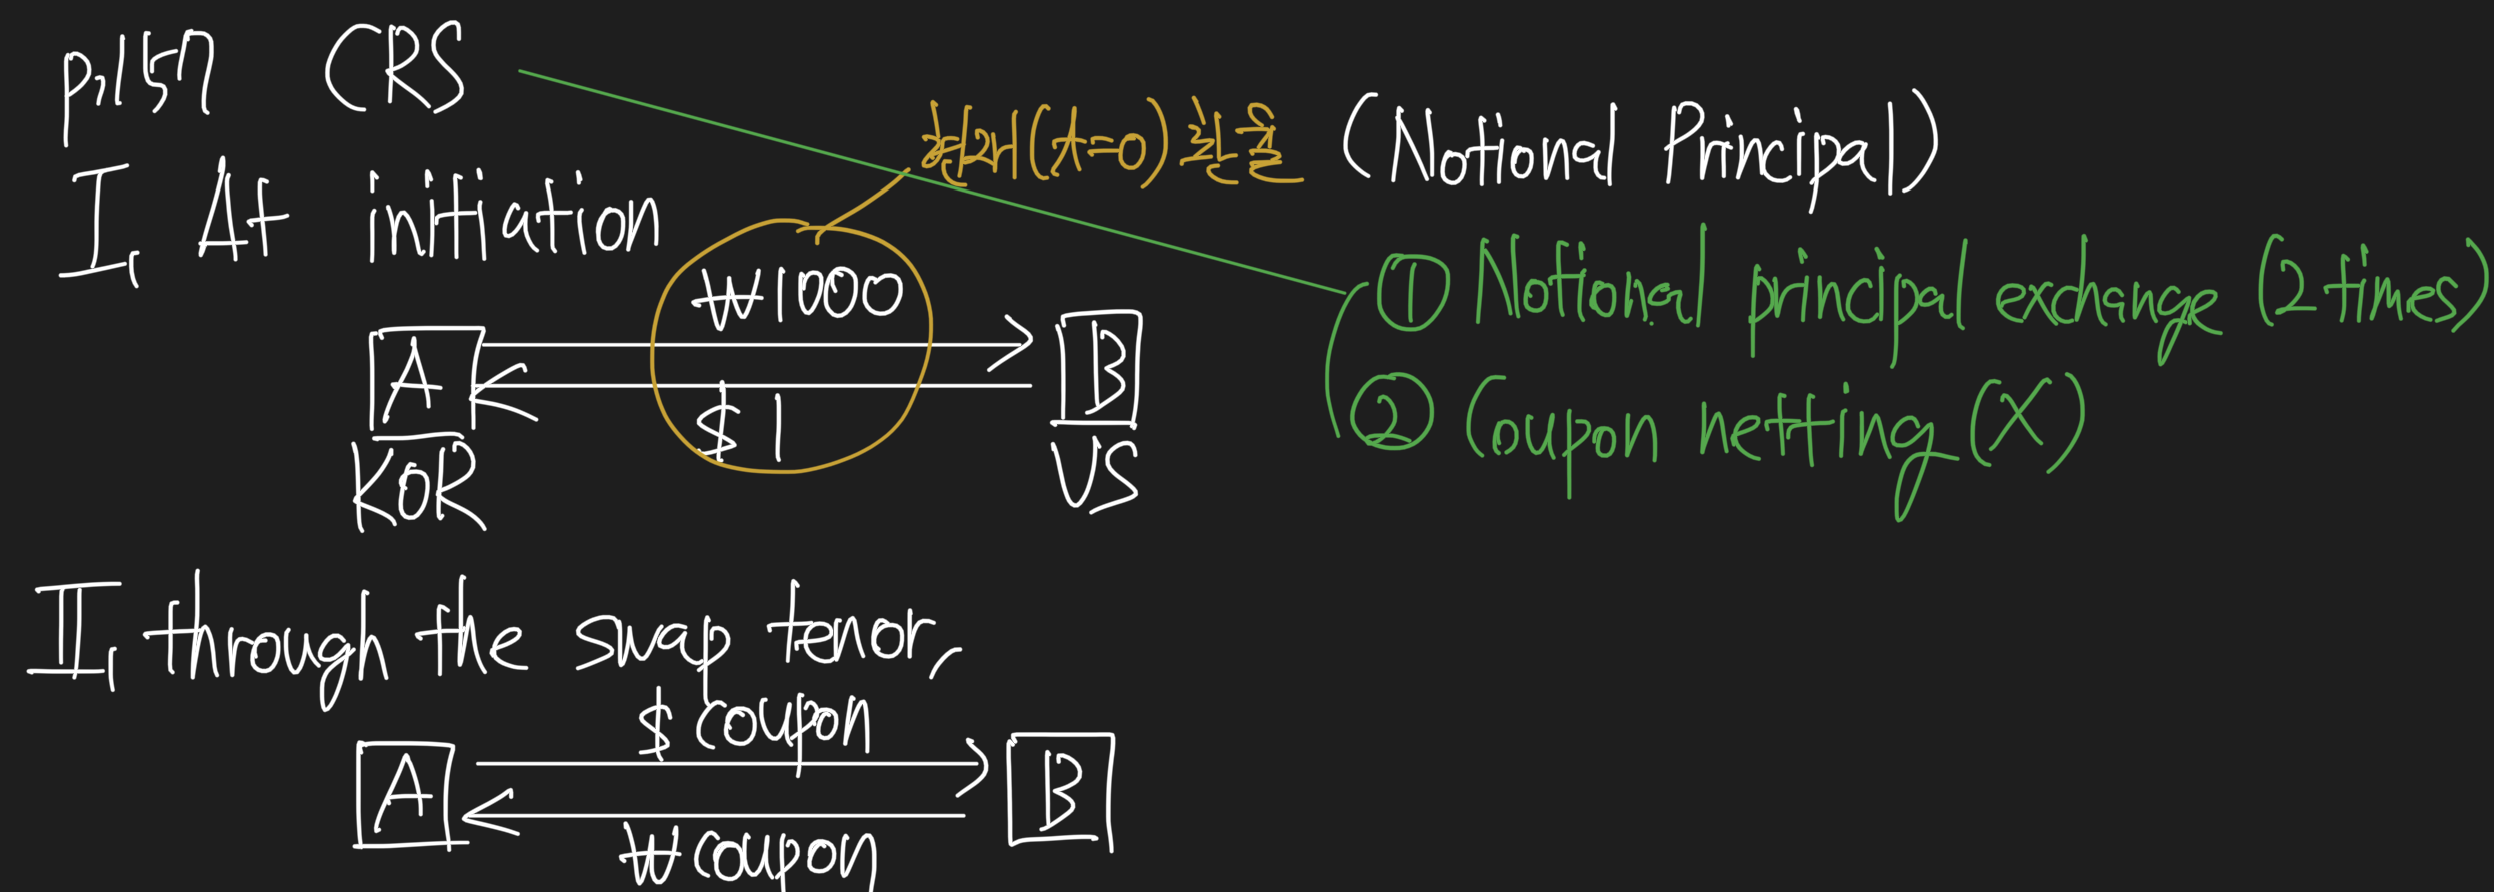 p.157 CRS
I, At initiation
현재(t=0) 환율
(Notional Principal)
₩1000
A
B
$ 1
KOR
US
① Notional principal exchange (2 times)
② Coupon netting (X)
II, through the swap tenor,
$ coupon
A
B
₩ coupon